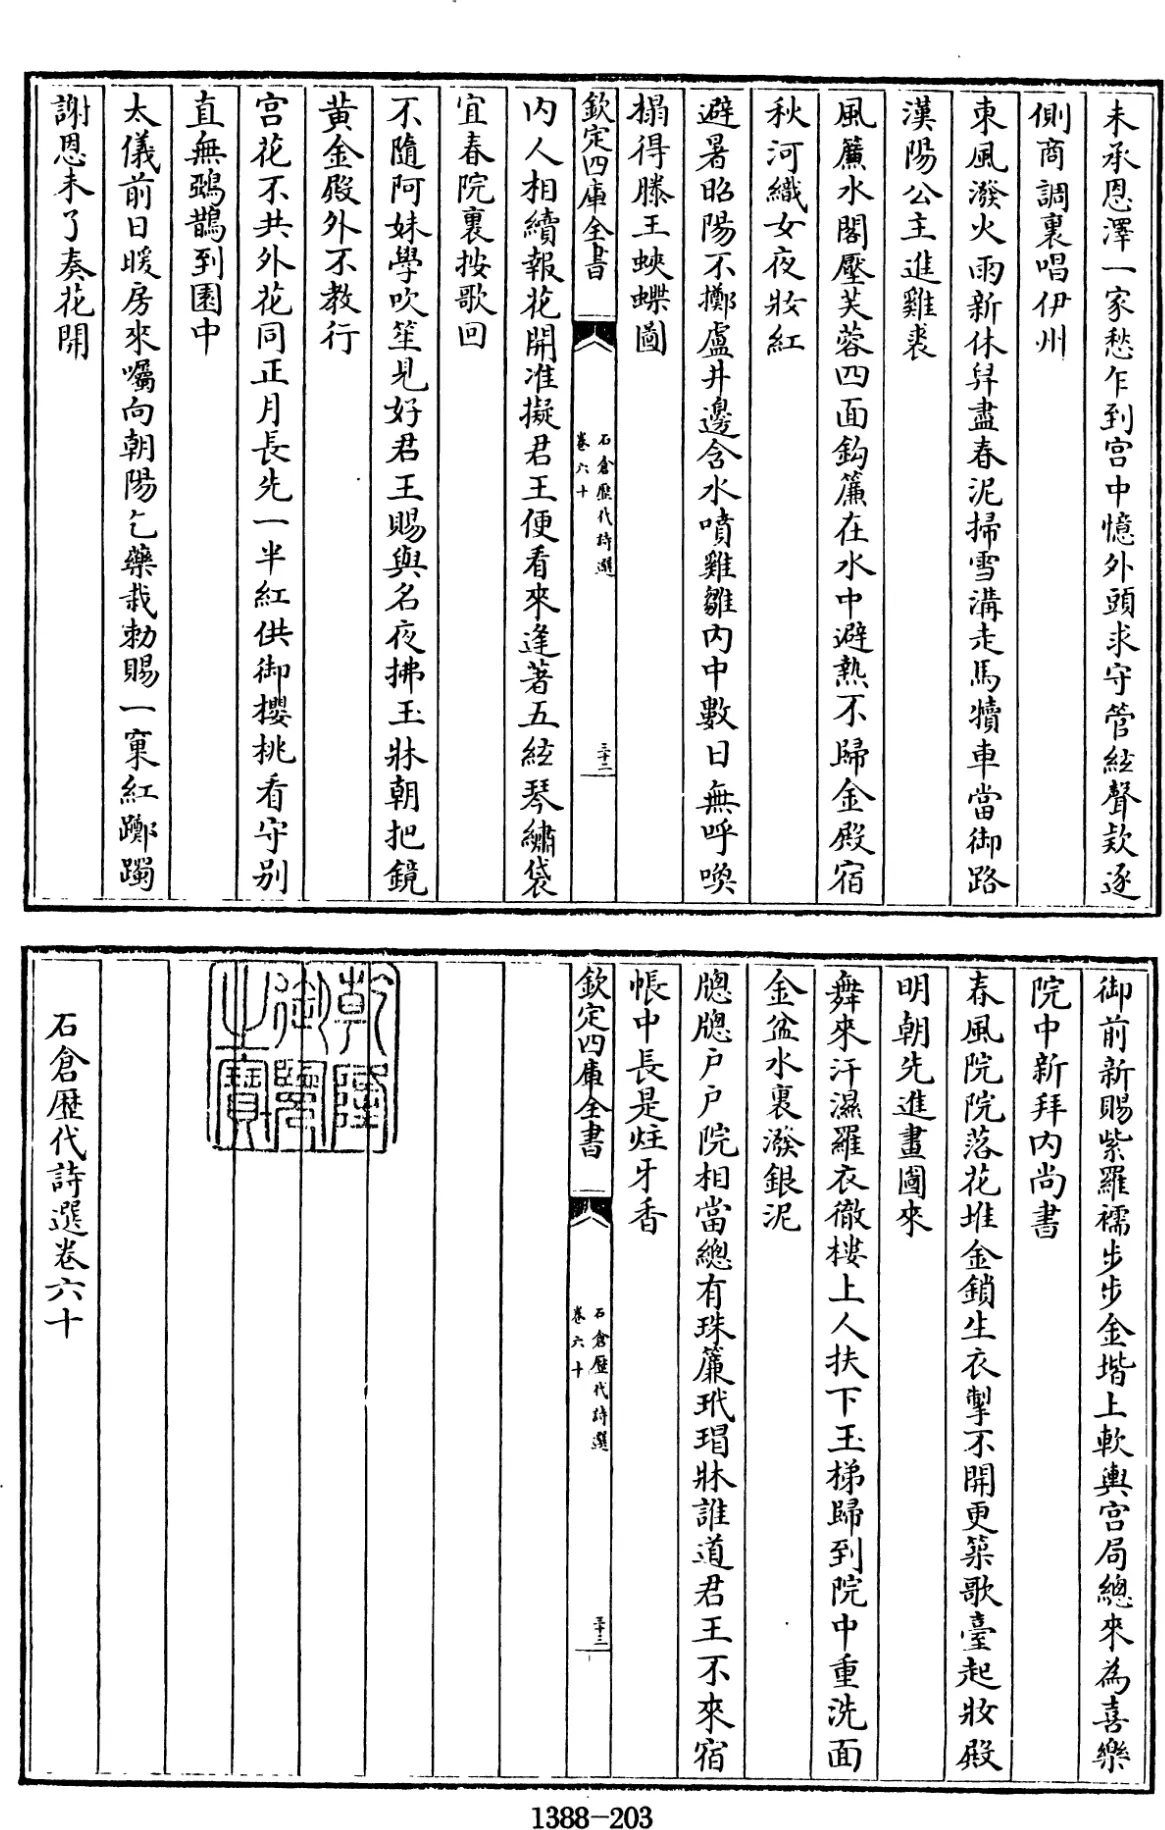 未承恩澤一家愁乍到宫中憶外頭求守管絃聲欵逐
側商調裏唱伊州
東風潑火雨新休舁盡春泥掃雪溝走馬犢車當御路
漢陽公主進雞裘
風簾水閣壓芙蓉四面鈎簾在水中避熱不歸金殿宿
秋河織女夜妝紅
避暑昭陽不擲盧井邊含水噴雞雛内中數日無呼喚
搨得滕王蛺蝶圖
欽定四庫全書
石倉歷代詩選
卷六十
三十二
内人相續報花開准擬君王便看來逢著五絃琴繡袋
宜春院裏按歌回
不隨阿妹學吹笙見好君王賜與名夜拂玉牀朝把鏡
黄金殿外不教行
宫花不共外花同正月長先一半紅供御櫻桃看守别
直無鵶鵲到園中
太儀前日暖房來囑向朝陽乞藥栽勅賜一窠紅躑躅
謝恩未了奏花開
御前新賜紫羅襦步步金堦上軟輿宫局總來為喜樂
院中新拜内尚書
春風院院落花堆金鎖生衣掣不開更築歌臺起妝殿
明朝先進畫圖來
舞來汗濕羅衣徹樓上人扶下玉梯歸到院中重洗面
金盆水裏潑銀泥
牕牕户户院相當總有珠簾玳瑁牀誰道君王不來宿
帳中長是炷牙香
欽定四庫全書
石倉歷代詩選
卷六十
三十三
乾隆御覽之寶
石倉歷代詩選卷六十
1388-203